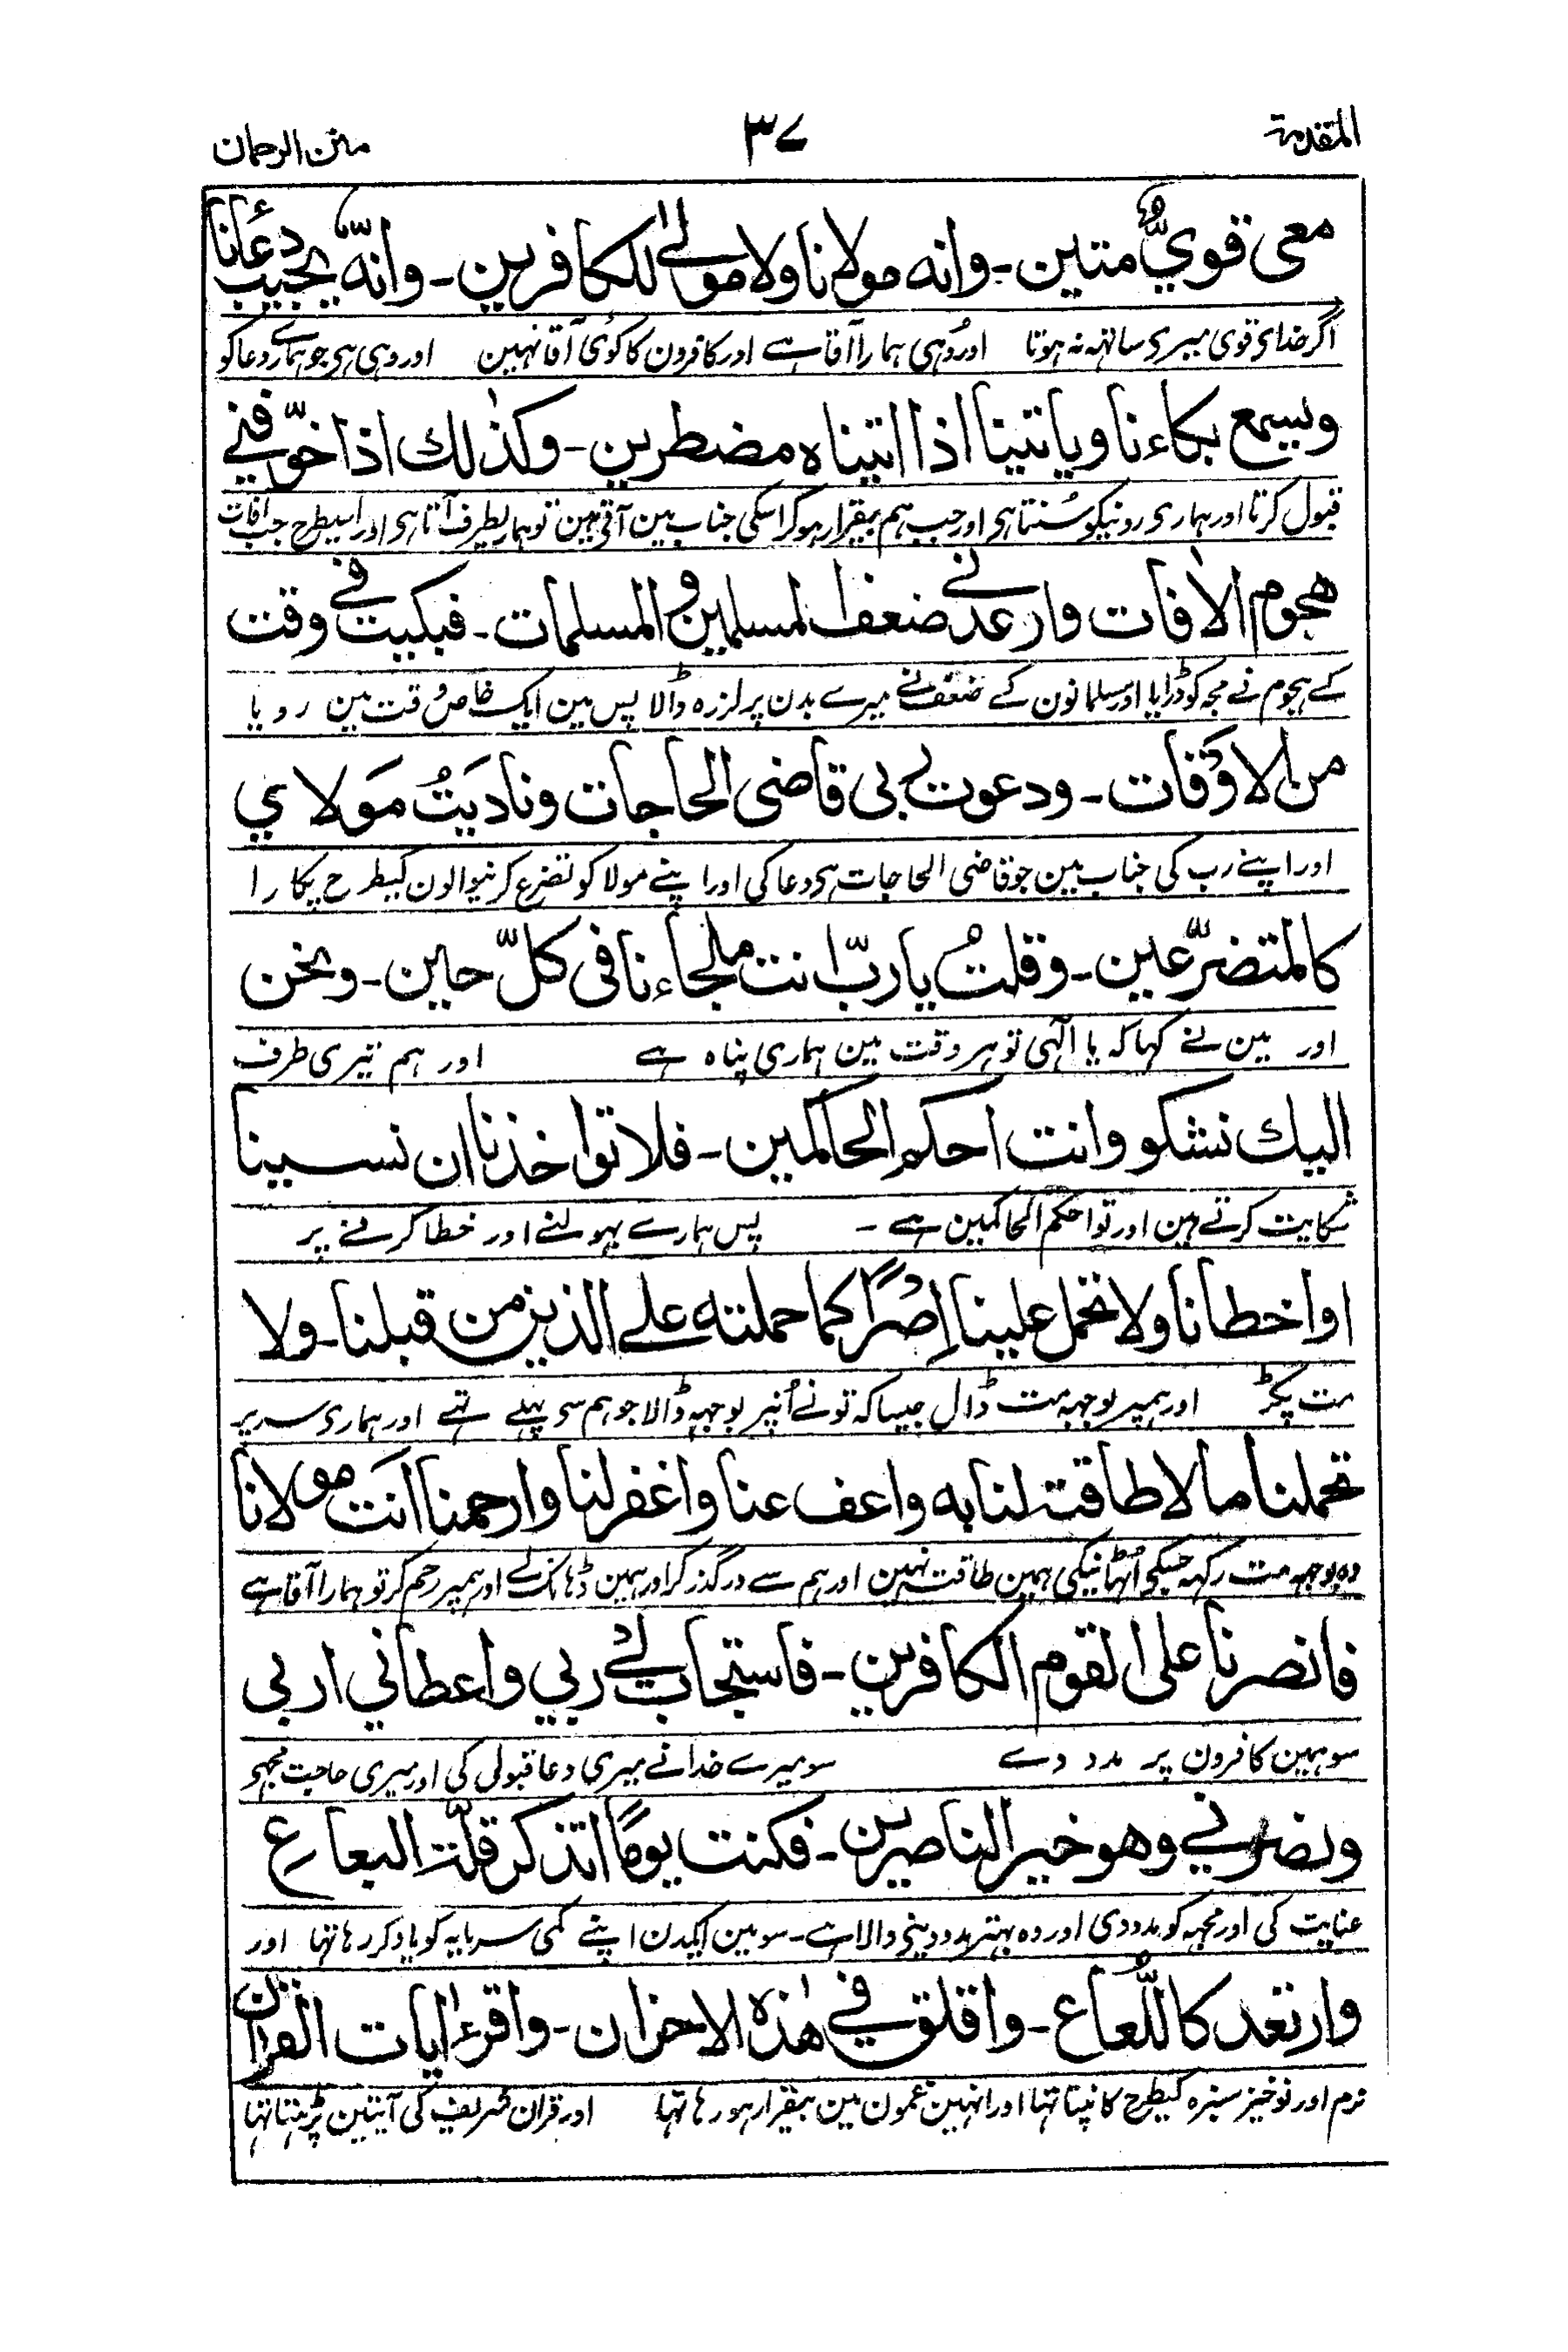 المقدمة ٣٧ منن الرحمان
معى قويٌّ متين۔ وانه مولانا ولا مولىٰ للكافرين۔ وانّه يجيب دعائنا
اگر خدای قوی میری ساتهہ نہ ہوتا اور وُہی ہمارا آقا ہے اور کافرون کا کوئی آقا نہین اور وہی ہی جو ہمارے دعا کو
ويسمع بكاءنا وياتينا اذا اتيناه مضطرين۔ وكذٰلك اذا خوّفنے
قبول کرتا اور ہماری رونیکو سُنتا ہی اور جب ہم بیقرار ہو کر اسکی جناب مین آتی ہین تو ہماریطرف آتا ہی اور اسیطرح جب افات
هجوم الاٰفات وارعدنے ضعف المسلمين والمسلمات۔ فبكيت فے وقت
کے ہجوم نے مجہ کو ڈرایا اور مسلمانون کے ضعف نے میرے بدن پر لرزہ ڈالا پس مین ایک خاص وقت مین رویا
من الاوقات۔ ودعوت ربى قاضى الحاجات وناديتُ مَولاي
اور اپنے رب کی جناب مین جو قاضی الحاجات ہی دعا کی اور اپنے مولا کو تضرع کرنیوالون کیطرح پکارا
كالمتضرّعين۔ وقلتُ يا ربّ انت ملجاءنا فى كلّ حين۔ ونحن
اور مین نے کہا کہ یا الٓہی تو ہر وقت مین ہماری پناہ ہے اور ہم تیری طرف
اليك نشكو وانت احكم الحاكمين۔ فلا تواخذنا ان نسينا
شکایت کرتے ہین اور تو احکم الحاکمین ہے ۔ پس ہمارے بہولنے اور خطا کرنے پر
او اخطانا ولا تحمل علينا اِصْرًا كما حملته علے الذين من قبلنا۔ ولا
مت پکڑ اور ہمپر بوجہہ مت ڈال جیسا کہ تونے اُنپر بوجہہ ڈالا جو ہم سی پہلے تہے اور ہماری سر پر
تحملنا ما لا طاقت لنا به واعف عنا واغفر لنا وارحمنا اَنت مولانا
وہ بوجہہ مت رکہہ جسکی اُٹہانیکی ہمین طاقت نہین اور ہم سے درگذر کر اور ہمین ڈہانک لے اور ہمپر رحم کر تو ہمارا آقا ہے
فانصرنا على القوم الكافرين۔ فاستجاب لے ربي واعطاني اربي
سو ہمین کافرون پر مدد دے سو میرے خدا نے میری دعا قبولی کی اور میری حاجت مجہو
ونصرني وهو خير الناصرين۔ فكنت يومًا اتذكر قلّة البعاع
عنایت کی اور مجہہ کو مدد دی اور وہ بہتر مدد دینی والا ہے۔ سو مین ایکدن اپنے کمی سرمایہ کو یاد کر رہا تہا اور
وارتعد كاللُّعاع۔ واقلق في هٰذه الاحزان۔ واقرء اٰيات القراٰن
نرم اور نوخیز سبزہ کیطرح کانپتا تہا اور انہین غمون مین بیقرار ہو رہا تہا اور قران شریف کی آیتین پڑہتا تہا